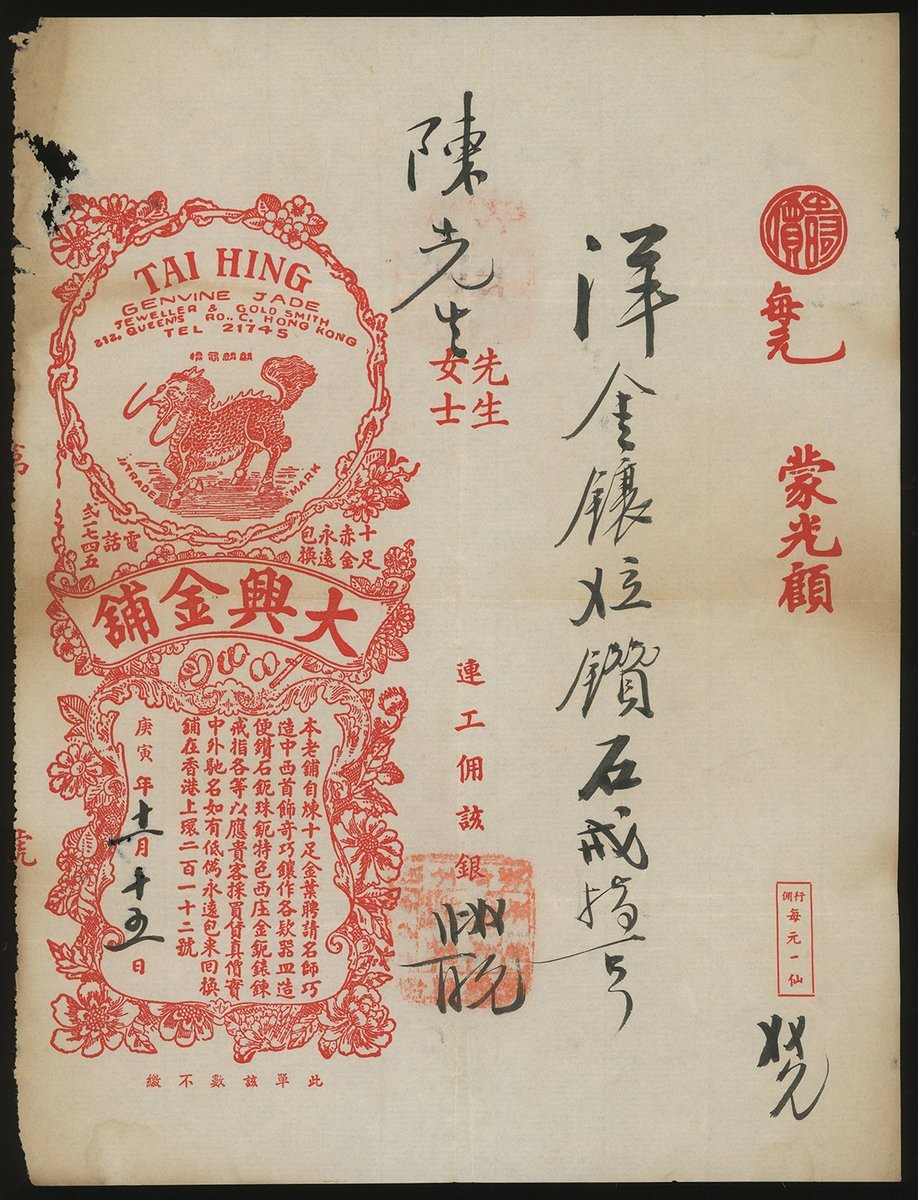 每元
蒙光顧
行佣每元一仙
洋金鑲
鑽石戒指
陳先生
先生
女士
連工佣該銀
TAI HING
GENVINE JADE
JEWELLER & GOLD SMITH
212, QUEEN'S RD., C. HONG KONG
TEL 21745
TRADE MARK
十足赤金永遠包換
電話弍一七四五
大興金舖
本老舖自煉十足金葉聘請名師巧
造中西首飾奇巧鑲作各款器皿造
便鑽石鈪珠鈪特色西庄金鈪錶鍊
戒指各等以應貴客採買貨真價實
中外馳名如有低偽永遠包來回換
舖在香港上環二百一十二號
庚寅年十一月十五日
此單該數不繳